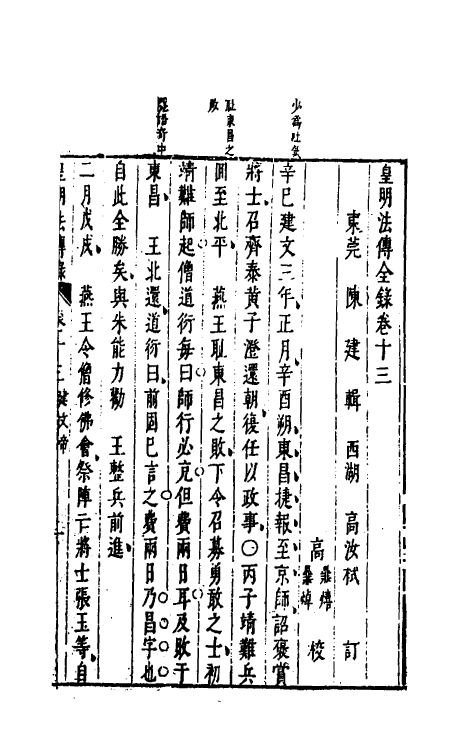 皇明法傳全錄卷十三
東莞 陳建 輯 西湖 高汝栻 訂
高 校
辛巳建文三年正月辛酉朔東昌捷報至京師詔褒賞
將士召齊泰黃子澄還朝復任以政事○丙子靖難兵
回至北平 燕王耻東昌之敗下令召募勇敢之士初
靖難師起僧道衍每曰師行必克但費兩日耳及敗于
東昌 王北還道衍曰前固已言之費兩日乃昌字也
自此全勝矣與朱能力勸 王整兵前進
二月戊戌 燕王令僧修佛會祭陣亡將士張玉等自
皇明法傳錄 卷十三 建文帝 一
少爲吐氣
耻東昌之
敗
隱語奇中